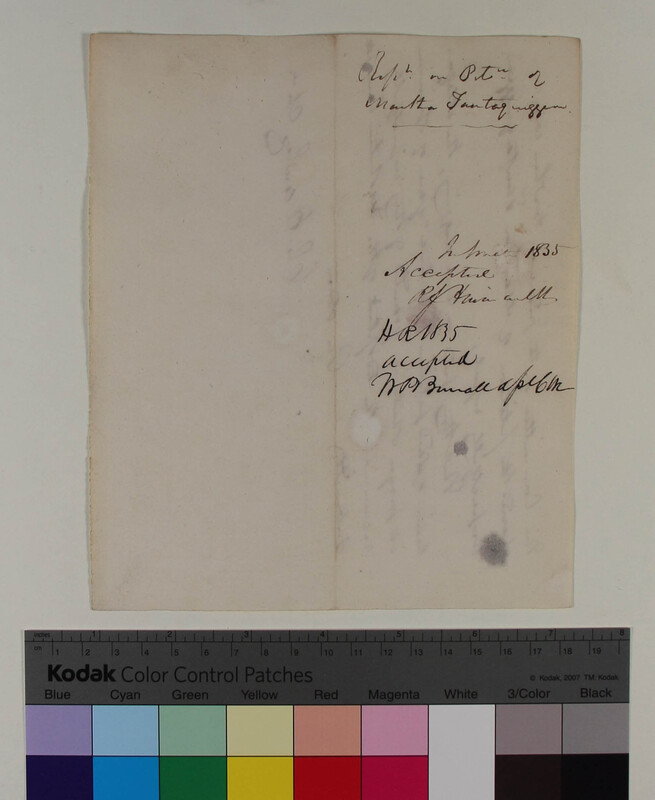 Rept. on Petn. of
Martha Tantaquiggen
In Senate 1835
Accepted
HR 1835
accepted
W P Burrall
inches 1 2 3 4 5 6 7 8
cm 1 2 3 4 5 6 7 8 9 10 11 12 13 14 15 16 17 18 19
Kodak Color Control Patches
© Kodak, 2007 TM: Kodak
Blue Cyan Green Yellow Red Magenta White 3/Color Black